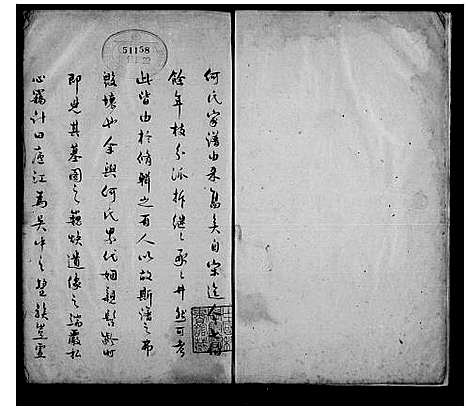 何氏家譜由來舊矣自宋迄今
餘年枝分派析繼繼承承井然可考
此皆由於脩輯之有人以故斯譜之弗
毀壞也余與何氏累代姻親髫齡時
即見其墓圖之巍峨遺像之端嚴私
心竊計曰廬江為吳中之望族豈虛
51158